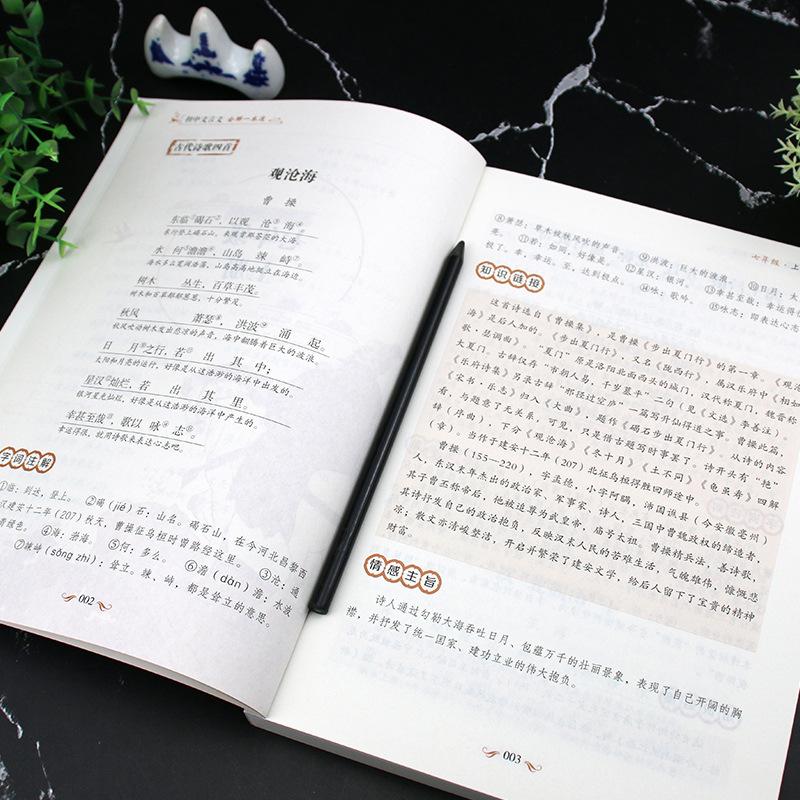 初中文言文 全解一本通
古代诗歌四首
观沧海
曹 操
东临①碣石②，以观 沧③海④。
东行登上碣石山，来观赏那苍茫的大海。
水 何⑤澹澹⑥，山岛 竦 峙⑦。
海水多么宽阔浩荡，山岛高高地挺立在海边。
树木 丛生，百草丰茂。
树木和百草郁郁葱葱，十分繁茂。
秋风 萧瑟⑧，洪波⑨ 涌 起。
秋风吹动树木发出悲凉的声音，海中翻腾着巨大的波浪。
日 月⑩之行，若⑪ 出 其 中；
太阳和月亮的运行，好像是从这浩渺的海洋中出发的。
星汉⑫灿烂，若 出 其 里。
银河星光灿烂，好像是从这浩渺的海洋中产生的。
幸甚至哉⑬，歌以 咏⑭ 志⑮。
幸运得很，就用诗歌来表达心志吧。
字词注解
①临：到达，登上。 ②碣（jié）石：山名。碣石山，在今河北昌黎西
汉建安十二年（207）秋天，曹操征乌桓时曾路经这里。 ③沧：通
着绿色。 ④海：渤海。 ⑤何：多么。 ⑥澹（dàn）澹：水波
⑦竦峙（sǒng zhì）：耸立。竦、峙，都是耸立的意思。
002
七年级·上
⑧萧瑟：草木被秋风吹的声音。 ⑨洪波：巨大的波浪。 ⑩日月：太
亮。 ⑪若：如同，好像是。 ⑫星汉：银河。 ⑬幸甚至哉：幸运得
极了。幸，幸运。至，达到极点。 ⑭咏：歌吟。 ⑮咏志：即表达心志
知识链接
这首诗选自《曹操集》，是曹操《步出夏门行》的第一章。《观沧
海》是后人加的。《步出夏门行》，又名《陇西行》，属汉乐府中《相和
歌·瑟调曲》。“夏门”原是洛阳北面西头的城门，汉代称夏门，魏晋称
大夏门。古辞仅存“市朝人易，千岁墓平”二句（见《文选》李善注）。
《乐府诗集》另录古辞“邪径过空庐”一篇写升仙得道之事。曹操此篇，
《宋书·乐志》归入《大曲》，题作《碣石步出夏门行》。从诗的内容
看，与题意了无关系，可见，只是借古题写时事罢了。诗开头有“艳”
辞（序曲），下分《观沧海》《冬十月》《土不同》《龟虽寿》四解
（章）。当作于建安十二年（207）北征乌桓得胜回师途中。
曹操（155—220），字孟德，小字阿瞒，沛国谯县（今安徽亳州）
人，东汉末年杰出的政治家、军事家、诗人，三国中曹魏政权的缔造者，
其子曹丕称帝后，他被追尊为武皇帝，庙号太祖。曹操精兵法，善诗歌，
其诗抒发自己的政治抱负，反映汉末人民的苦难生活，气魄雄伟，慷慨悲
凉；散文亦清峻整洁，开启并繁荣了建安文学，给后人留下了宝贵的精神
财富。
情感主旨
诗人通过勾勒大海吞吐日月、包蕴万千的壮丽景象，表现了自己开阔的胸
襟，并抒发了统一国家、建功立业的伟大抱负。
003